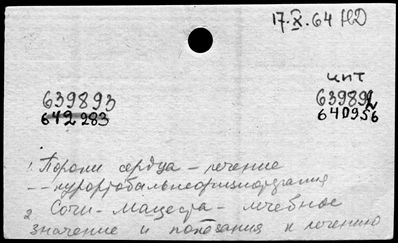 17.X.64 НД
чит
639893 639892
642283 640956
1. Пороки сердца – лечение
– – курортобальнеофизиотерапия
2. Сочи – Мацеста – лечебное
значение и показания к лечению